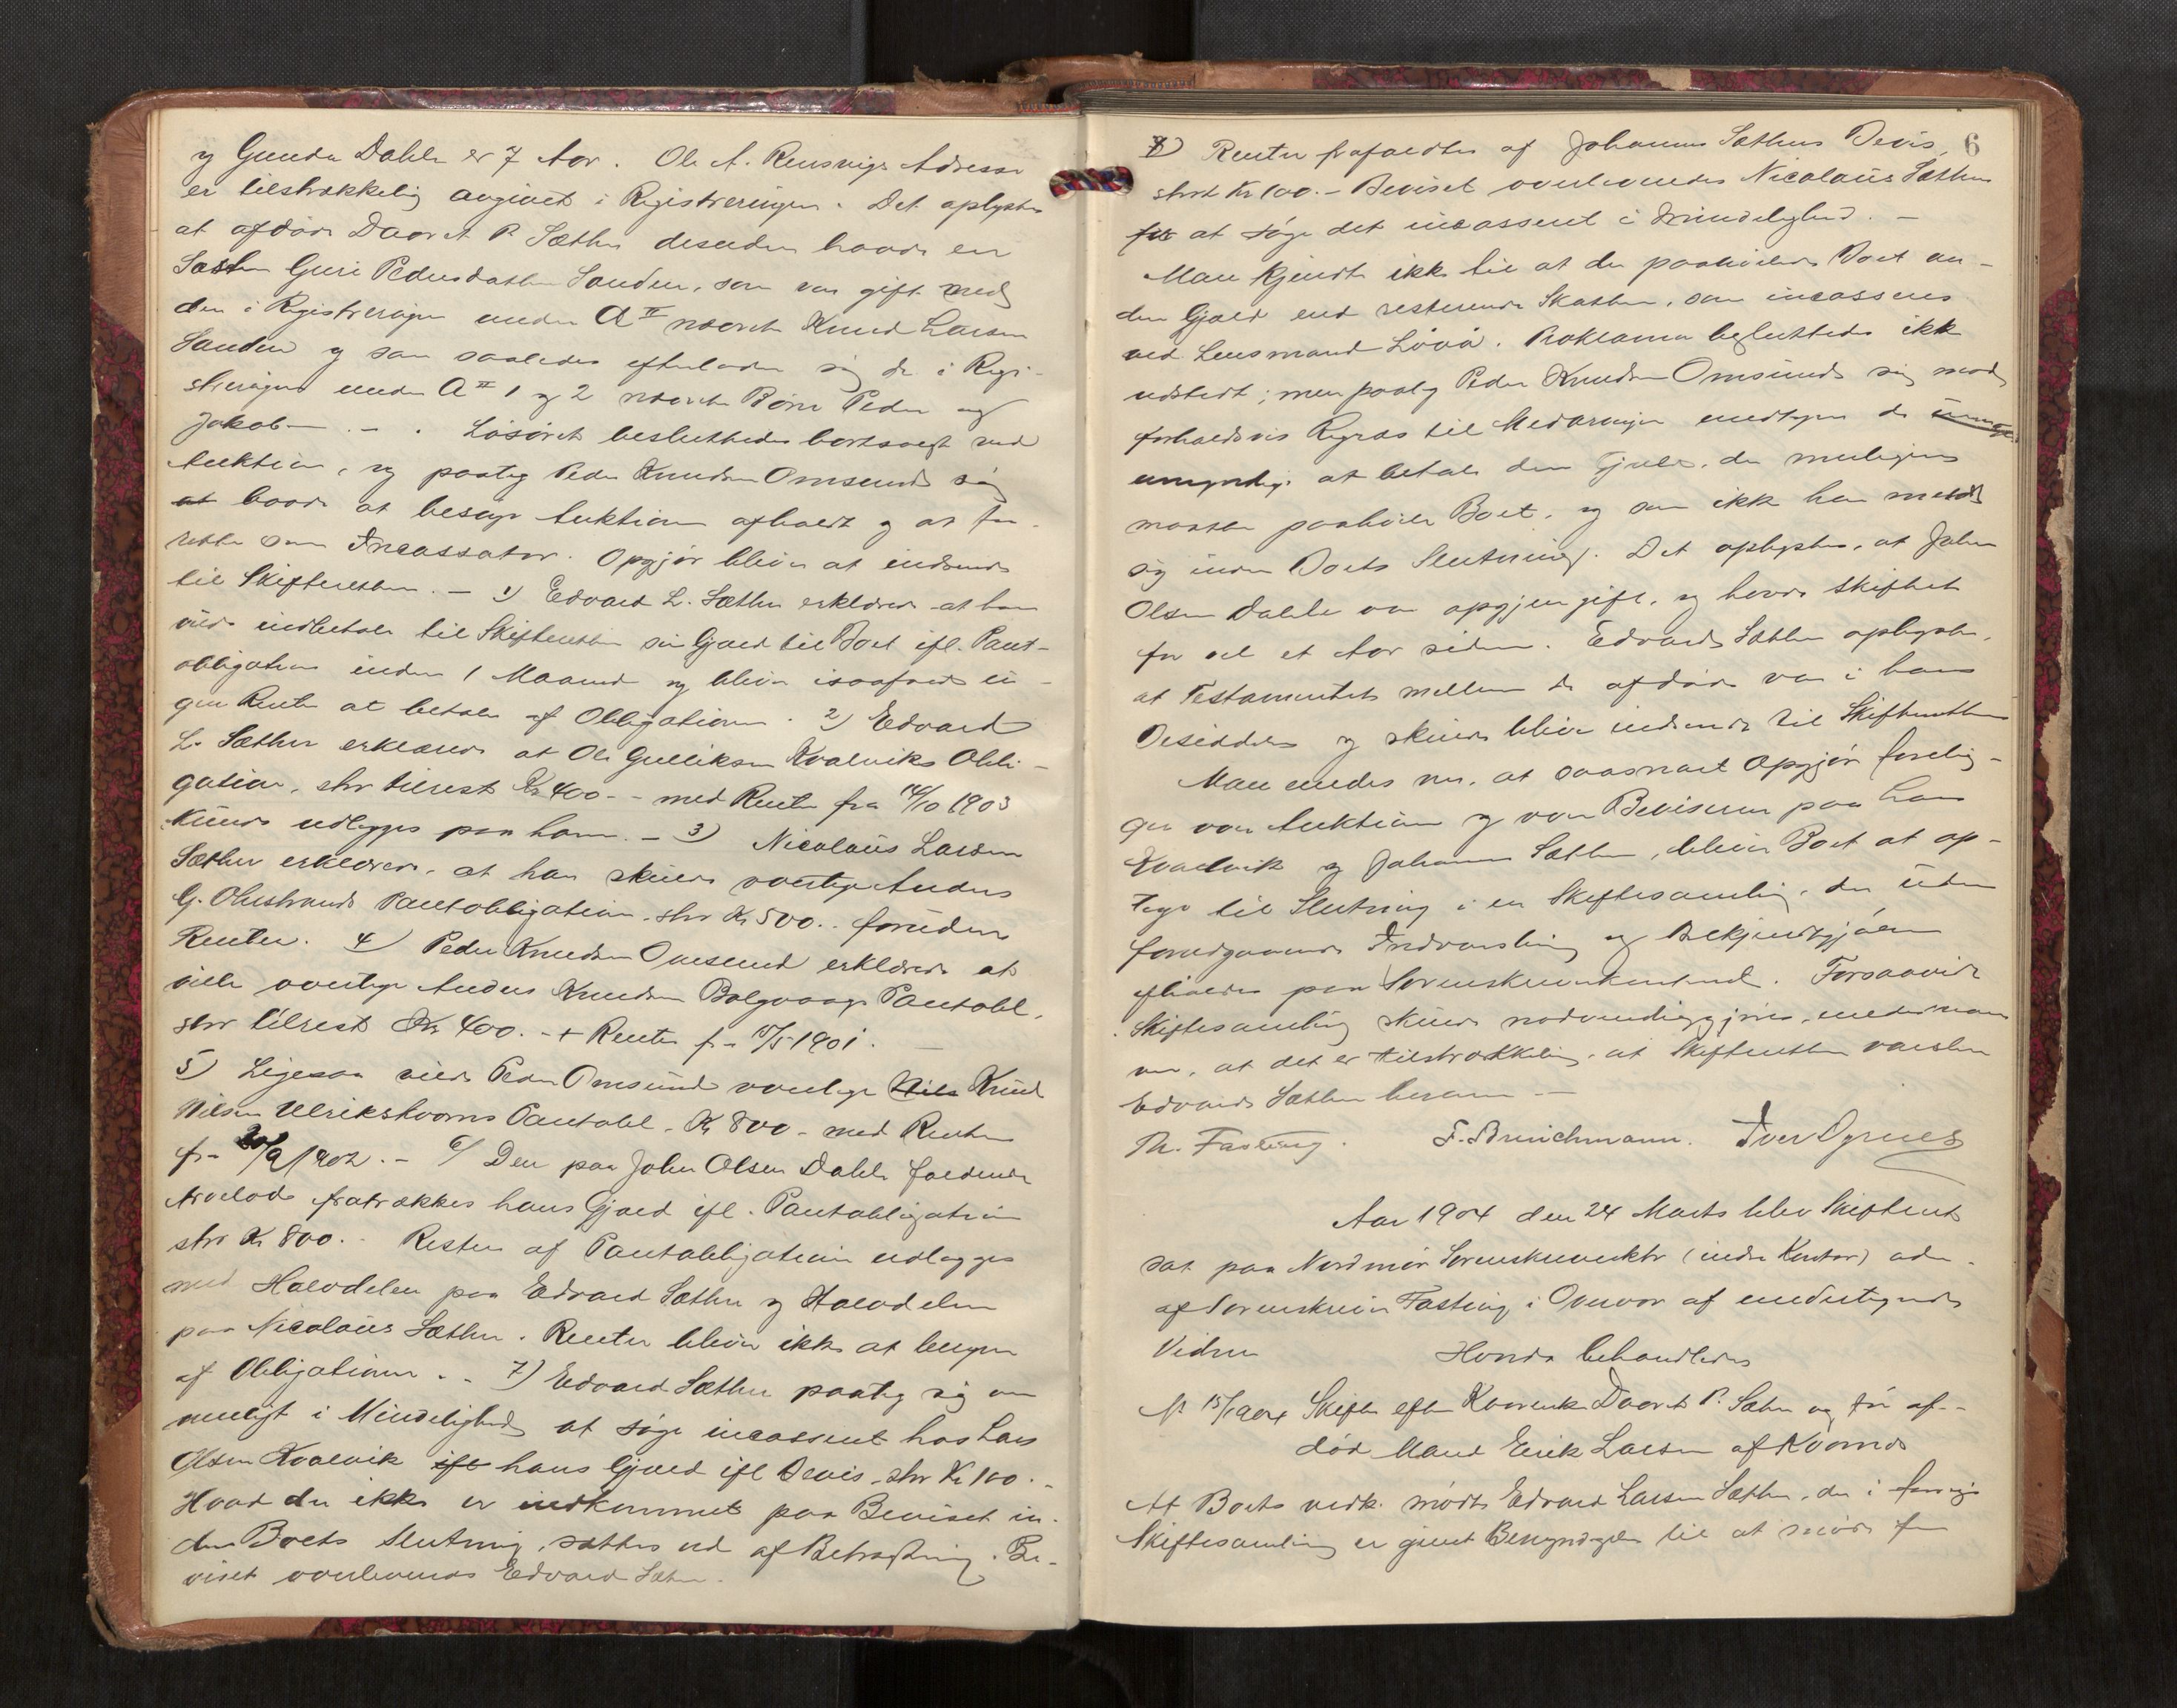 og Gunda Dahle er 7 Aar. Ole A. Rensvigs Adresse
er tilstrækkelig angivet i Registreringen. Det oplystes
at afdøde Daaret P. Sæther desuden havde en
Søster Guri Pedersdatter Sanden, som var gift med
den i Registreringen under A II nævnte Knud Larsen
Sanden og som saaledes efterlader sig de i Regi-
streringen under A II 1 og 2 nævnte Børn Peder og
Jakob. — Løsøret besluttedes bortsolgt ved
Auktion, og paatog Peder Knudsen Omsund sig
at baade at besørge Auktionen afholdt og at fun-
som Incassator. Opgjør bliver at indsende
til Skifteretten. — 1) Edvard L. Sæther erklærede at han
vilde indbetale til Skifteretten sin Gjæld til Boet ifl. Pant-
obligation inden 1 Maaned og bliver isaafald in-
gen Renter at betale af Obligationen. 2) Edvard
L. Sæther erklærede at Ole Gulliksen Kvalviks Obli-
gation, stor tilrest Kr 400.- med Renter fra 14/10 1903
kunde udlægges paa ham. — 3) Nicolaus Larsen
Sæther erklærede, at han skulde overtage Anders
G. Ohrstrands Pantobligation, stor Kr 500.. foruden
Renter. 4) Peder Knudsen Omsund erklærede at
ville overtage Anders Knudsen Bolgvaags Pantobl.
stor tilrest Kr. 400. - + Renter fra 15/5 1901. —
5) Ligesaa vilde Peder Omsund overtage Nils Knud
Nilsen Ulrikstrøms Pantobl. Kr 800 - med Renter
fra 20/9 1902. — 6) Den paa John Olsen Dahle faldende
Arvelod fratrækkes hans Gjæld ifl. Pantobligation
stor Kr 800. - Resten af Pantobligationen udlægges
med Halvdelen paa Edvard Sæther og Halvdelen
paa Nicolaus Sæther. Renter bliver ikke at beregne
af Obligationen. - 7) Edvard Sæther paatog sig om
muligt i Mindelighed at søge incasseret hos Lars
Olsen Kvalvik ifl hans Gjæld ifl Bevis, stor Kr 100. -
Hvad der ikke er indkommet paa Beviset in-
den Boets Slutning, sættes ud af Betragtning. Be-
viset overleveredes Edvard Sæther.
6
8) Renter frafaldtes af Johannes Sæthers Bevis,
stort Kr 100. - Beviset overleveredes Nicolaus Sæther
for at søge det incasseret i Mindelighed. —
Man kjendte ikke til at der paahviler Boet an-
den Gjæld end resterende Skatter, som incasseres
ved Lensmand Löva. Proklama besluttedes ikke
udstedt; men paatog Peder Knudsen Omsund sig mod
forholdsvis Regres til Medarvinger undtagen de
umyndige at betale den Gjæld, der muligens
maatte paahvile Boet, og som ikke har meldt
sig inden Boets Slutning. Det oplystes, at John
Olsen Dahle var gift, og havde skiftet
for vel et Aar siden. Edvard Sæther oplyste,
at Testamentet mellem de afdøde var i hans
Besiddelse og skulde blive indsendt til Skifteretten
Man enedes om, at saasnart Opgjør forelig-
ger over Auktionen og over Beviserne paa Lars
Kvalvik og Johannes Sæther, bliver Boet at op-
tage til Slutning i en Skiftesamling, der uden
forudgaaende Indvarsling og Bekjendtgjørelse
afholdes paa Sorenskriverkontoret. Forsaavidt
Skiftesamling skulde nødvendiggjøres, enedes man
om, at det er tilstrækkelig, at Skifteretten varsler
Edvard Sæther herom —
Th. Fasting. F. Bruichmann. Iver Ogrues
Aar 1904 den 24 Marts blev Skifteret
sat paa Nordmør Sorenskriverktr (indre Kontor) adm.
af Sorenskriver Fasting i Overvær af undertegnede
Vidner Hvorda behandledes
No 15/1904 Skifte efter Kaarenke Daaret P. Sæther og før af-
død Mand Erik Larsen af Kvarnde
At Boets vedk. mødte Edvard Larsen Sæther, der i forrige
Skiftesamling er givet Bemyndigelse til at møde for